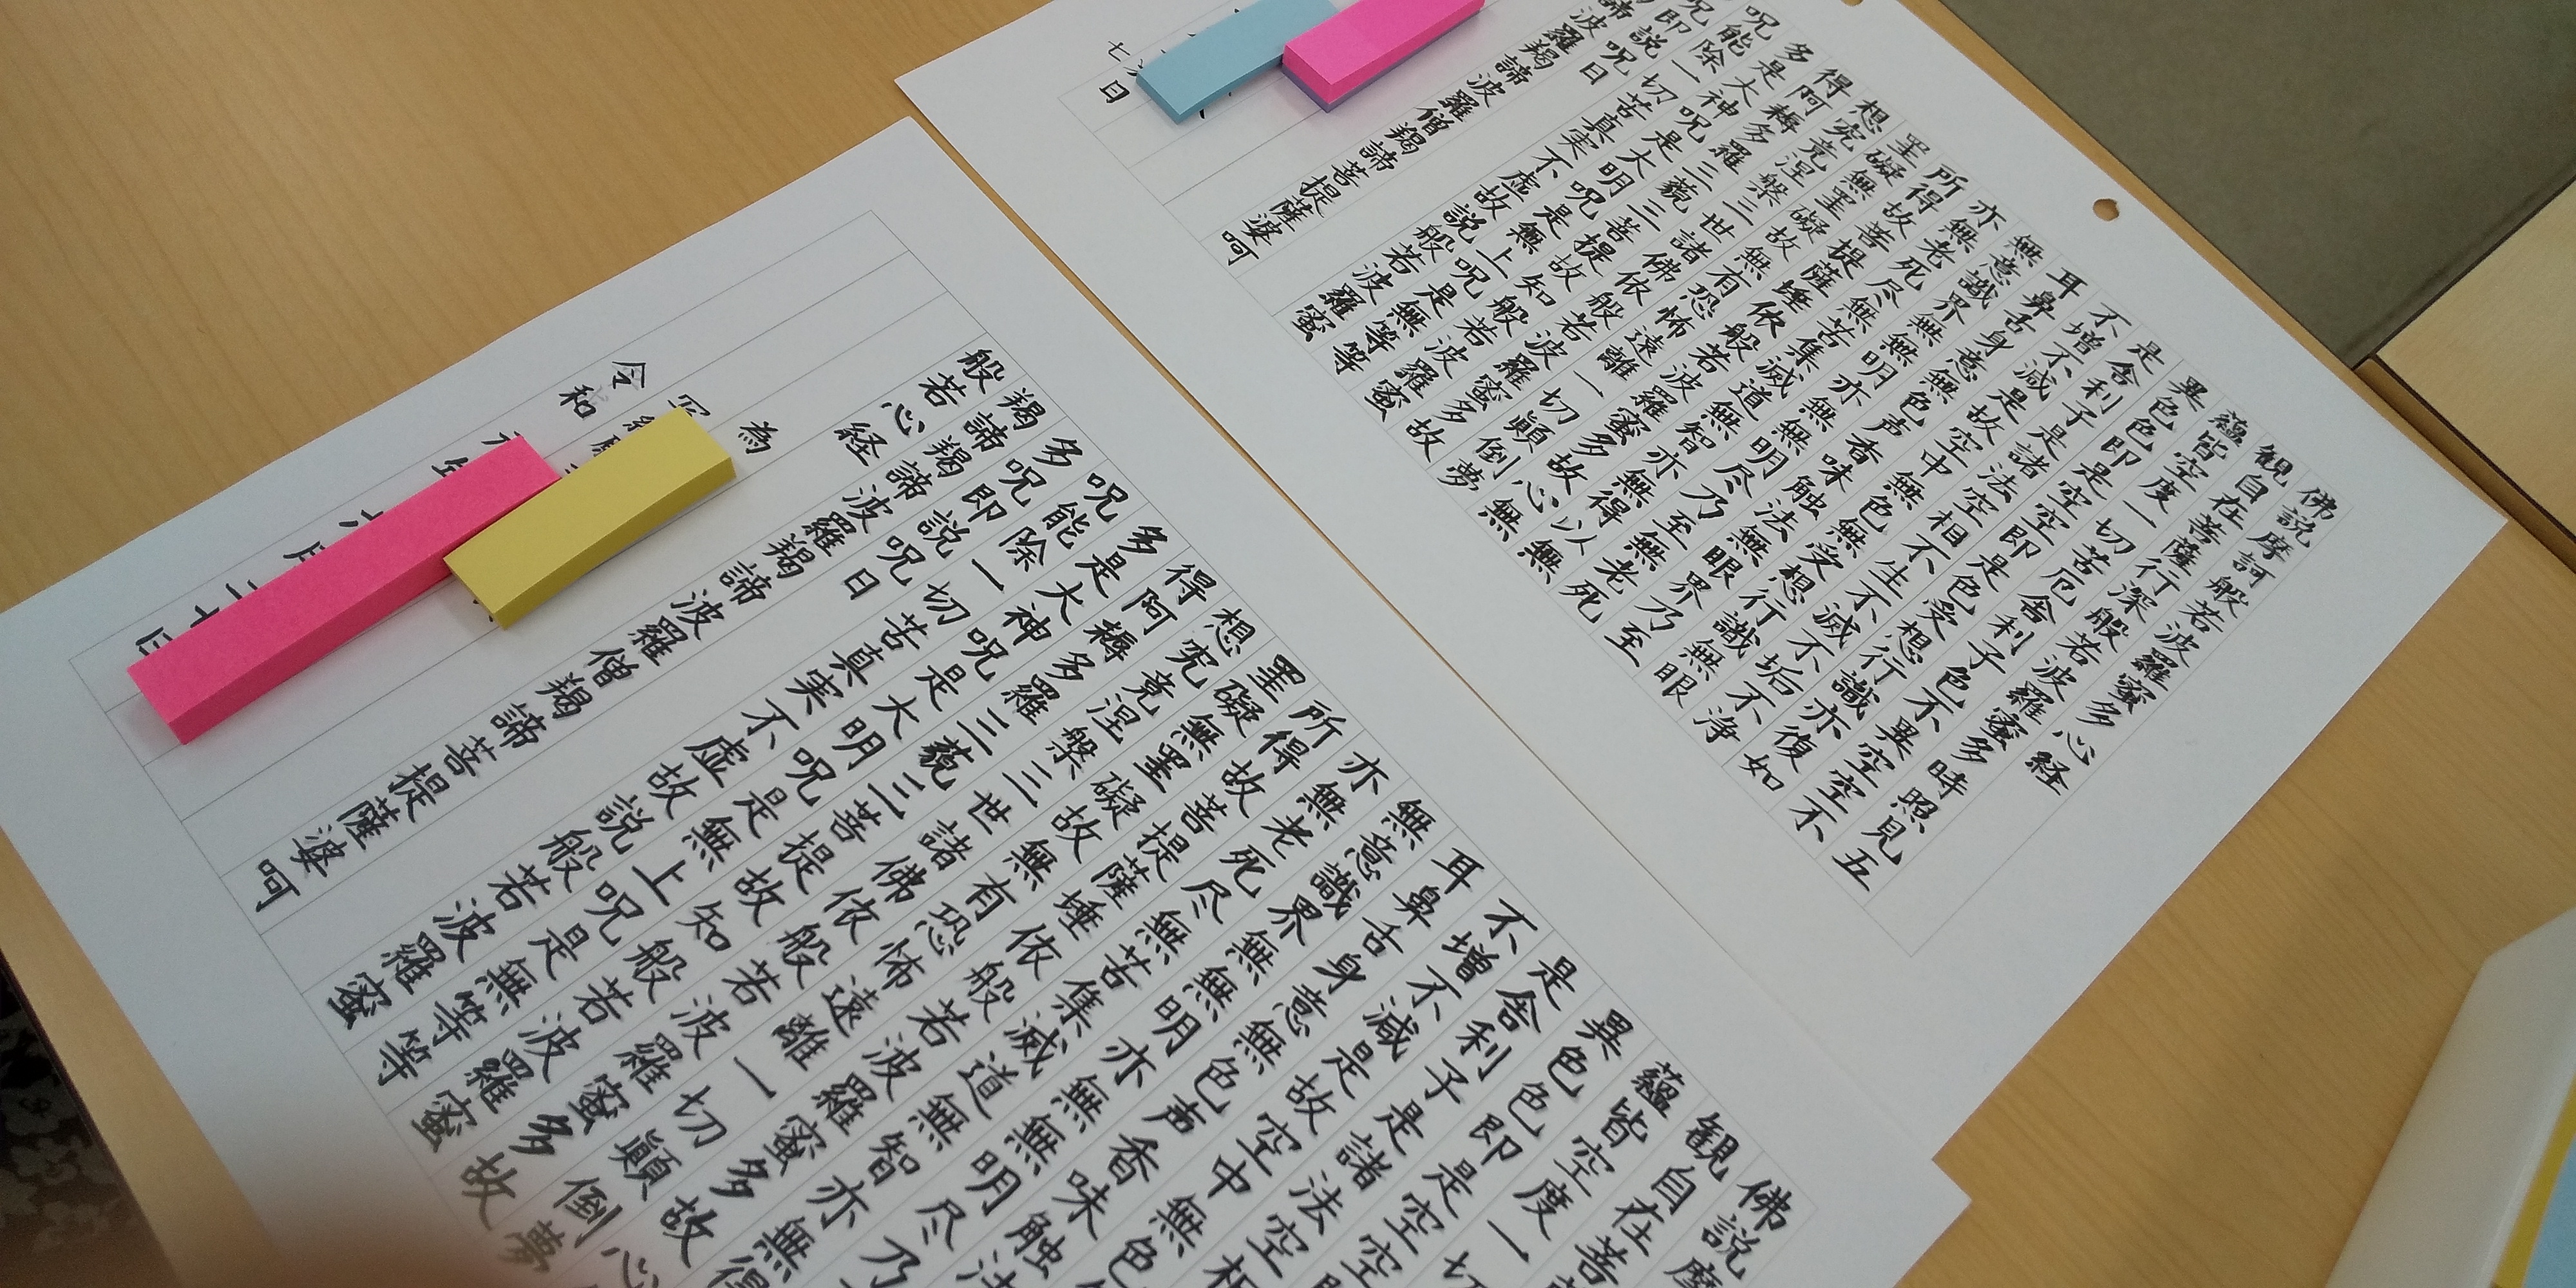 佛説摩訶般若波羅蜜多心経
観自在菩薩行深般若波羅蜜多時照見五
蘊皆空度一切苦厄舎利子色不異空空不
異色色即是空空即是色受想行識亦復如
是舎利子是諸法空相不生不滅不垢不浄
不増不減是故空中無色無受想行識無眼
耳鼻舌身意無色声香味触法無眼界乃至
無意識界無無明亦無無明尽乃至無老死
亦無老死尽無苦集滅道無智亦無得以無
所得故菩提薩埵依般若波羅蜜多故心無
罣礙無罣礙故無有恐怖遠離一切顛倒夢
想究竟涅槃三世諸佛依般若波羅蜜多故
得阿耨多羅三藐三菩提故知般若波羅蜜
多是大神呪是大明呪是無上呪是無等等
呪能除一切苦真実不虚故説般若波羅蜜
呪即説呪日
諦波羅羯諦波羅僧羯諦菩提薩婆呵
七日
佛説摩
観自在菩
蘊皆空度一切
異色色即是空空
是舎利子是諸法空
不増不減是故空中無色
耳鼻舌身意無色声香味触法
無意識界無無明亦無無明尽乃
亦無老死尽無苦集滅道無智亦無得
所得故菩提薩埵依般若波羅蜜多故心
罣礙無罣礙故無有恐怖遠離一切顛倒夢
想究竟涅槃三世諸佛依般若波羅蜜多故
得阿耨多羅三藐三菩提故知般若波羅蜜
多是大神呪是大明呪是無上呪是無等等
呪能除一切苦真実不虚故説般若波羅蜜
多呪即説呪日
羯諦羯諦波羅羯諦波羅僧羯諦菩提薩婆呵
般若心経
為
令和